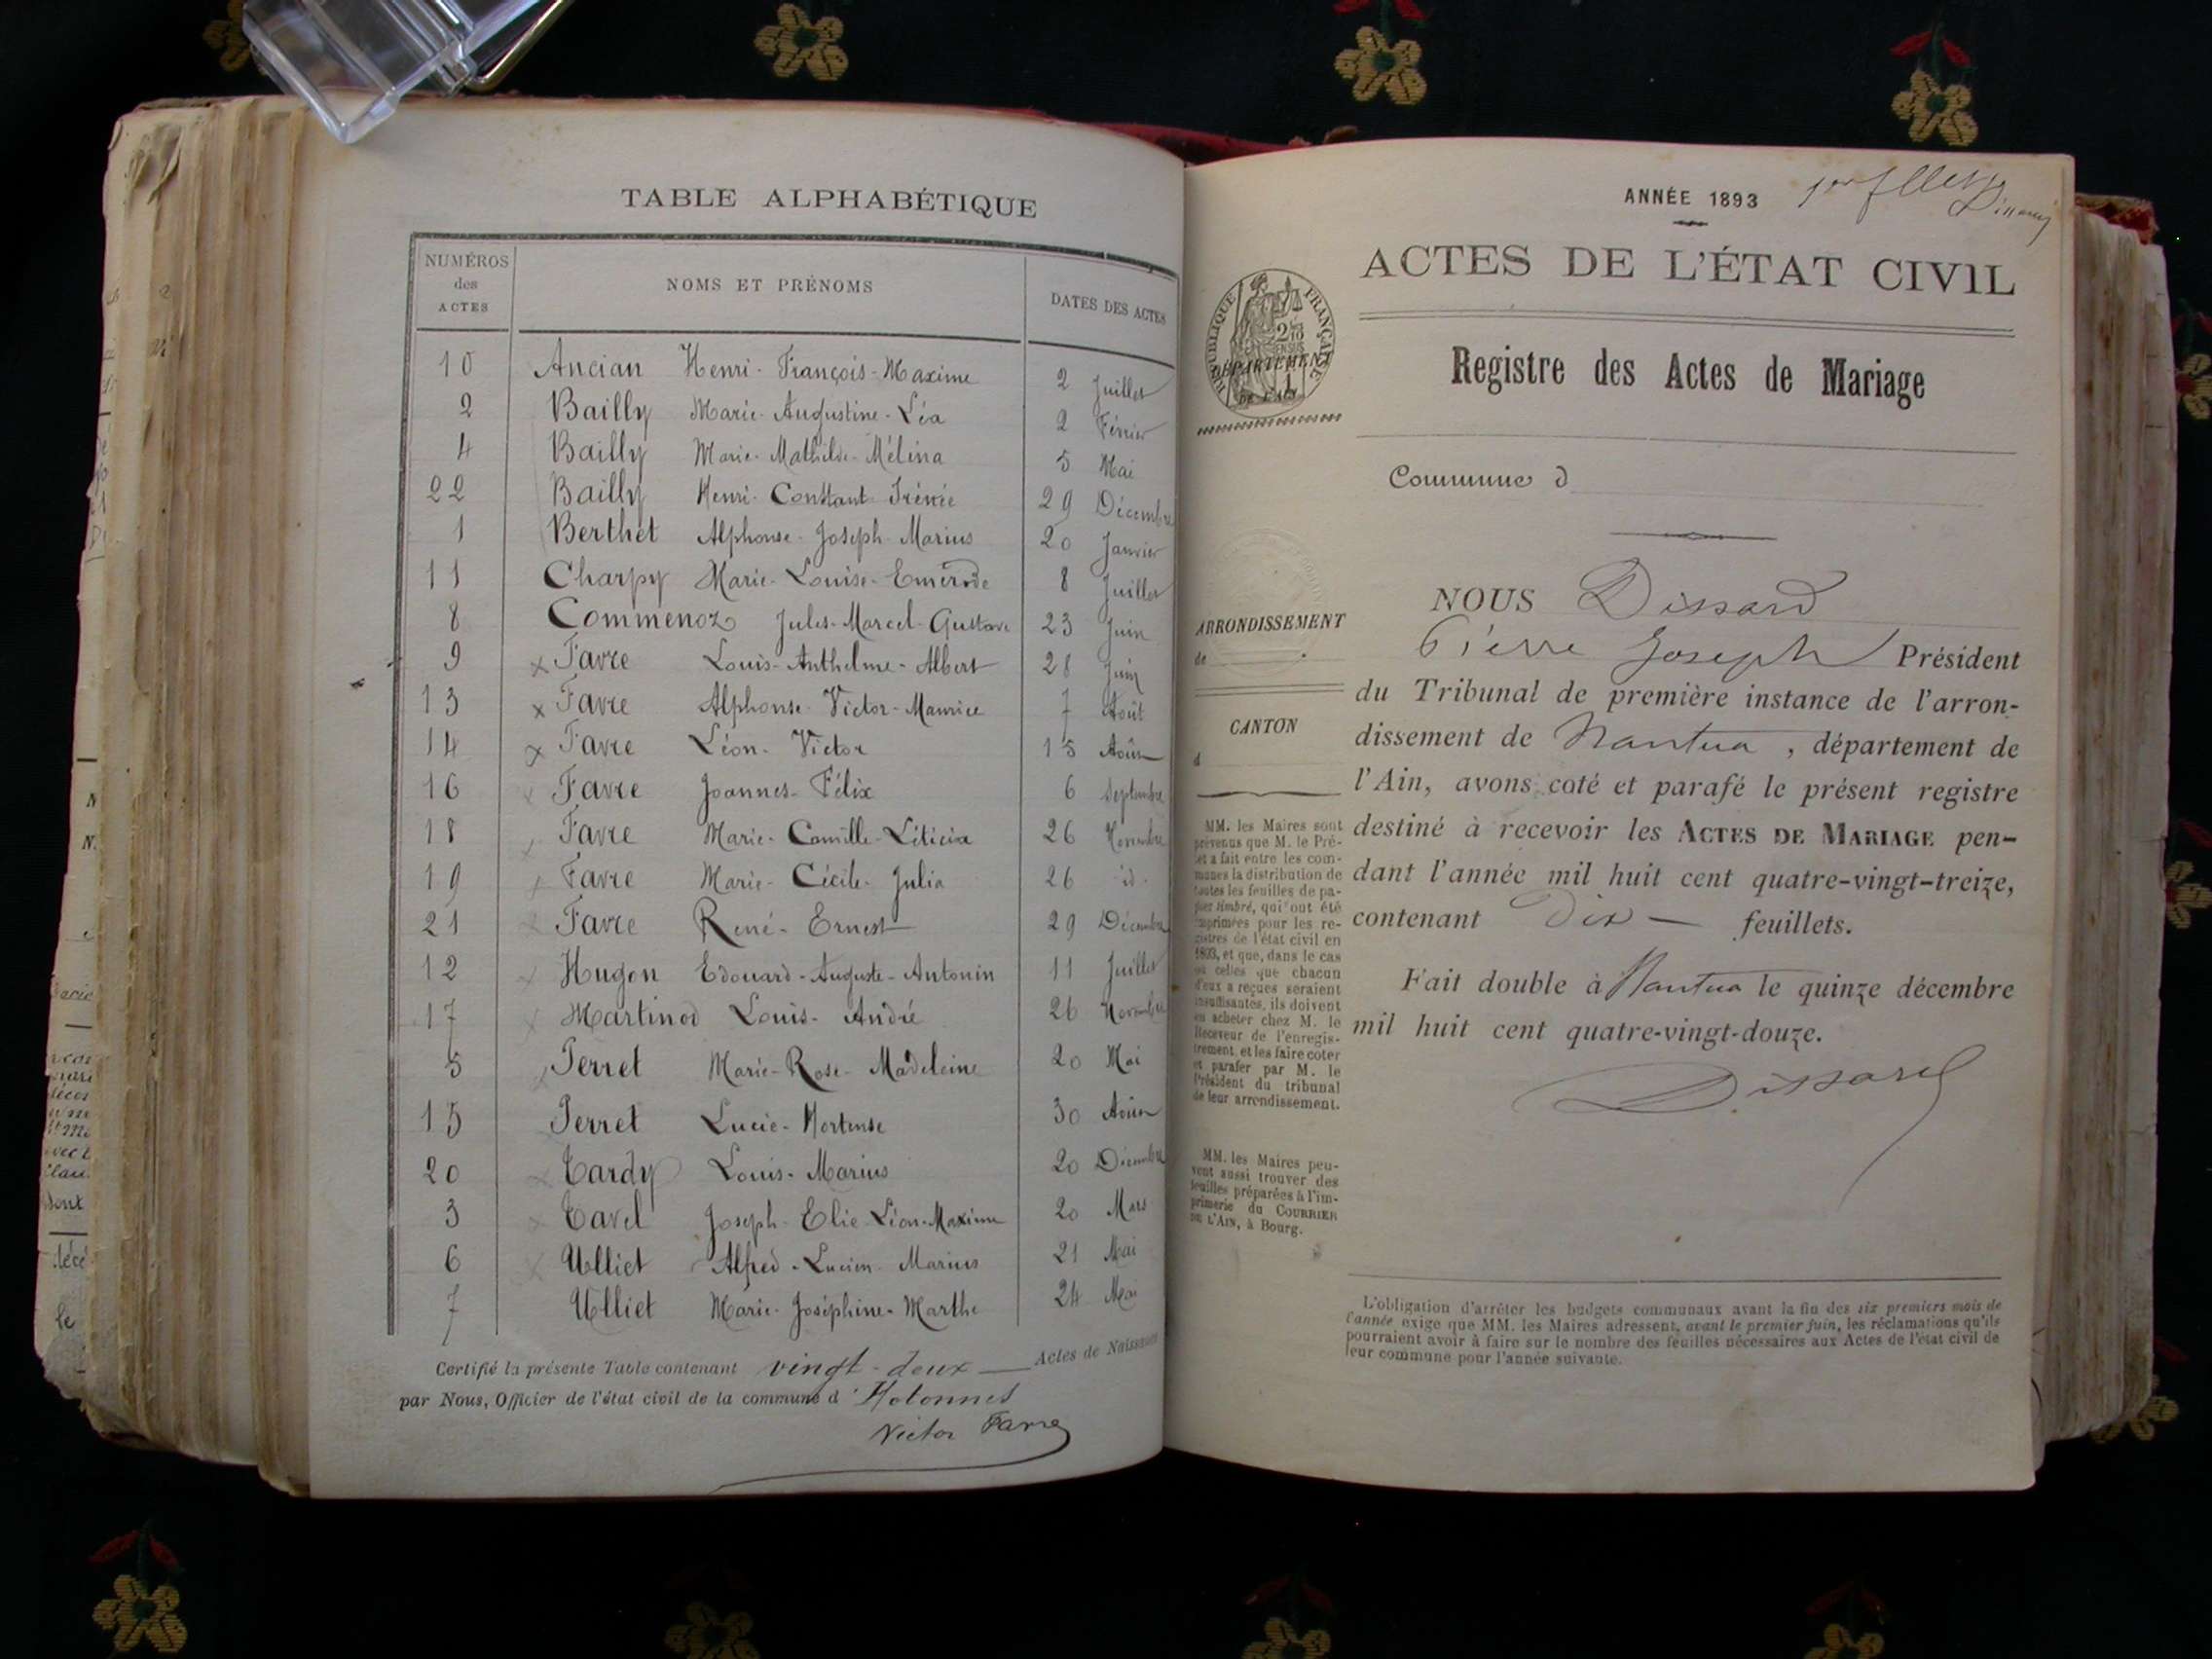 TABLE ALPHABÉTIQUE
NUMÉROS des ACTES NOMS ET PRÉNOMS DATES DES ACTES
10 Ancian Henri-François-Maxime 2 Juillet
2 Bailly Marie-Augustine-Léa 2 Février
4 Bailly Marie-Mathilde-Mélina 5 Mai
22 Bailly Henri-Constant-Irénée 29 Décembre
1 Berthet Alphonse-Joseph-Marius 20 Janvier
11 Charpy Marie-Louise-Emérode 8 Juillet
8 Commenoz Jules-Marcel-Gustave 23 Juin
9 x Favre Louis-Anthelme-Albert 28 Juin
13 x Favre Alphonse-Victor-Maurice 7 Août
14 x Favre Léon-Victor 15 Août
16 x Favre Joannès-Félix 6 Septembre
18 Favre Marie-Camille-Léticia 26 Novembre
19 x Favre Marie-Cécile-Julia 26 id.
21 x Favre René-Ernest 29 Décembre
12 x Hugon Edouard-Auguste-Antonin 11 Juillet
17 x Martinod Louis-André 26 Novembre
5 Perret Marie-Rose-Madeleine 20 Mai
15 x Perret Lucie-Hortense 30 Août
20 x Tardy Louis-Marius 20 Décembre
3 x Tavel Joseph-Elie-Léon-Maxime 20 Mars
6 x Ulliet Alfred-Lucien-Marius 21 Mai
7 Ulliet Marie-Joséphine-Marthe 24 Mai
Certifié la présente Table contenant vingt-deux — Actes de Naissance
par Nous, Officier de l'état civil de la commune d'Hotonnes
Victor Favre
ANNÉE 1893
ACTES DE L'ÉTAT CIVIL
RÉPUBLIQUE FRANÇAISE
DÉPARTEMENT
DE L'AIN
Registre des Actes de Mariage
Commune d
ARRONDISSEMENT
de
CANTON
d
MM. les Maires sont
prévenus que M. le Pré-
fet a fait entre les com-
munes la distribution de
toutes les feuilles de pa-
pier timbré, qui ont été
imprimées pour les re-
gistres de l'état civil en
1893, et que, dans le cas
où celles que chacun
d'eux a reçues seraient
insuffisantes, ils doivent
en acheter chez M. le
Receveur de l'enregis-
trement et les faire coter
et parafer par M. le
Président du tribunal
de leur arrondissement.
MM. les Maires peu-
vent aussi trouver des
feuilles préparées à l'im-
primerie du COURRIER
DE L'AIN, à Bourg.
NOUS Dissard
Pierre Joseph Président
du Tribunal de première instance de l'arron-
dissement de Nantua, département de
l'Ain, avons coté et parafé le présent registre
destiné à recevoir les ACTES DE MARIAGE pen-
dant l'année mil huit cent quatre-vingt-treize,
contenant Dix — feuillets.
Fait double à Nantua le quinze décembre
mil huit cent quatre-vingt-douze.
Dissard
L'obligation d'arrêter les budgets communaux avant la fin des six premiers mois de
l'année exige que MM. les Maires adressent, avant le premier juin, les réclamations qu'ils
pourraient avoir à faire sur le nombre des feuilles nécessaires aux Actes de l'état civil de
leur commune pour l'année suivante.